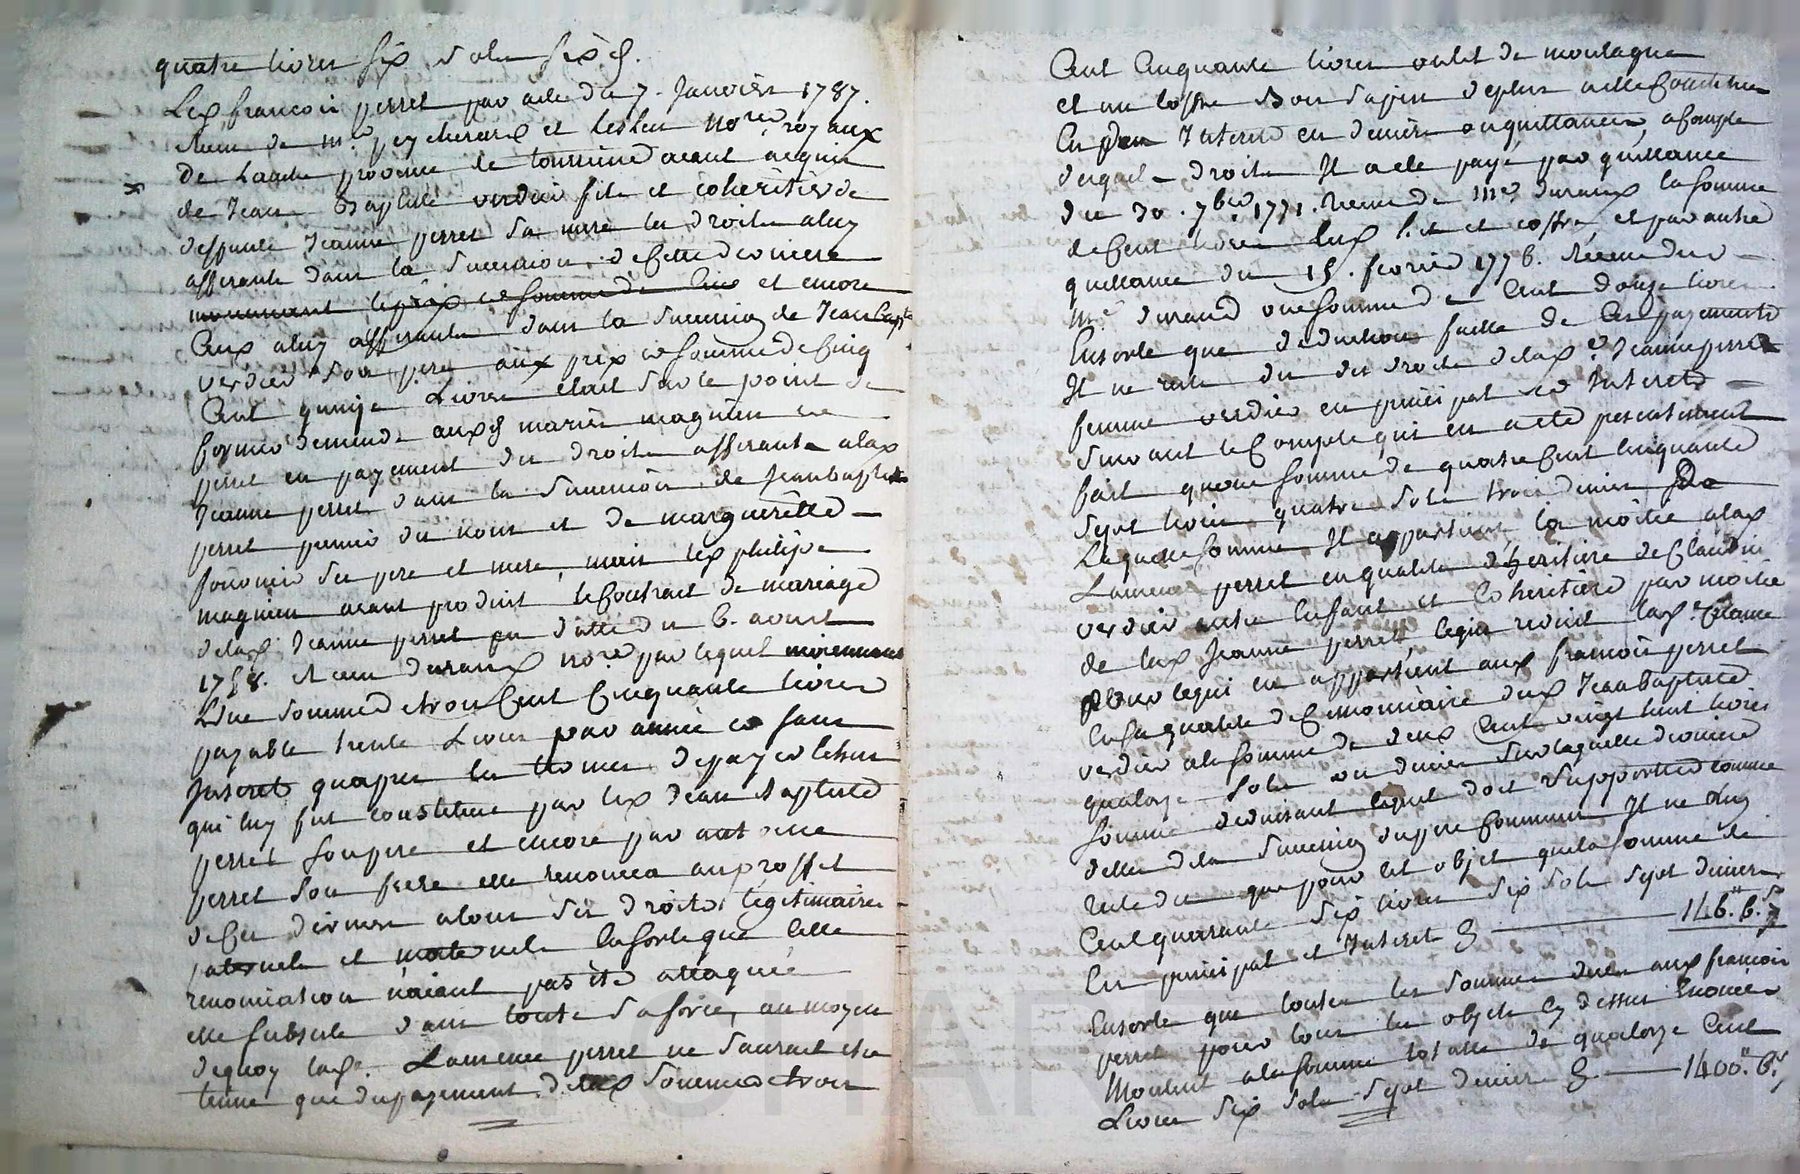 quatre livres six sols six d.
Led. francois perret par acte du 7. Janvier 1787.
de m.e peycheraud et no.res royaux
de province de ayant acquis
de Jean Baptiste verdier fils et coheritier de
deffunte Jeanne perret sa mere les droits a luy
afferants dans la succession de cette derniere
moienant le prix et somme de cinq et encore
Ceux a luy afferants dans la succession de Jean Bapt.e
verdier son pere aux prix et somme de Cinq
Cent quinze Livres etait sur le point de
former demende aux d. mariés magnien et
perret en payement des droits afferants a lad.
Jeanne perret dans la succession de Jean baptiste
perret premier du nom et de margueritte
ses pere et mere, mais led. philipe
magnien ayant produit le Contrat de mariage
de lad. Jeanne perret en datte du 6. avout
1758. receu durand no.re par lequel moiennant
Une somme de trois Cent Cinquante livres
payable trente Livres par année et sans
Interet qu'apres les termes de payer echus
qui luy fut constitué par led. Jean Baptiste
perret son pere et encore par antoine
perret son frere elle renonca au proffit
de ces derniers a tous ses droits legitimaires
paternels et maternels En sorte que Cette
renonciation n'aiant pas eté attaquée
elle subsiste dans toute sa force, au moyen
de quoy lad. Laurence perret ne saurait etre
tenue que du payement de lad. somme de trois
Cent Cinquante livres un lit de montagne
et un coffre Bois sapin de plus
En Interet en deniers ou quittances, a compte
desquels droits Il a eté payé par quittance
du 30. 7bre 1771. recue de M.e durand la somme
de Cent livres led. lit et coffre, et par autre
quittance du 15. fevrier 1776. recue dud.
M.e durand une somme de Cent douze livres
Ensorte que deduction faitte de Ces payements
Il ne reste du des droits de lad. Jeanne perret
femme verdier en principal et Interets
suivant le Compte qui en a eté presentement
fait qu'une somme de quatre Cent Cinquante
sept livres quatre sols trois deniers De
Laquelle somme Il appartient la moitié a lad.
Laurence perret en qualité d'heritiere de Claudine
verdier enfant et Coheritiere par moitié
de lad. Jeanne perret lad. Creance
pour ce qui en appartient aud. francois perret
En sa qualité de Cessionnaire dud. Jean baptiste
verdier a la somme de deux Cent vingt huit livres
quatorze sols un denier sur laquelle derniere
somme led. perret doit supporter comme
dette de la succession du pere Commun Il ne luy
reste du que pour cet objet que la somme de
Cent quarante six livres six sols sept deniers
En principal et Interet Cy 146.tt 6.s 7
Ensorte que toutes les sommes dues aud. francois
perret pour tous les objets Cy dessus Enoncés
Montent a la somme totalle de quatorze Cent
Livres six sols sept deniers Cy 1400.tt 6.s 7